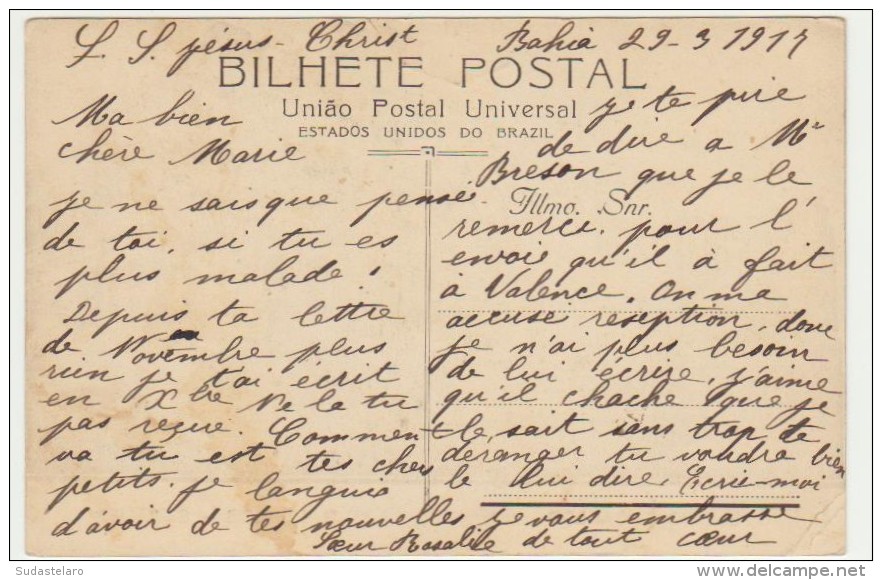 L. S. jésus-Christ
Bahia 29-3 1917
BILHETE POSTAL
União Postal Universal
ESTADOS UNIDOS DO BRAZIL
Illmo. Snr.
Ma bien
chère Marie
je ne sais que pensé
de toi, si tu es
plus malade.
Depuis ta lettre
de Novembre plus
rien je t'ai écrit
en Xbre Ne la tu
pas reçue. Comment
va tu est tes cher
petits. je languis
d'avoir de tes nouvelles
je te prie
de dire a Mr
Breson que je le
remerci pour l'
envoie qu'il à fait
à Valence. On ma
accuse reseption, donc
je n'ai plus besoin
de lui écrire, j'aime
qu'il chache que je
le sait sans trop te
déranger tu voudra bien
le lui dire. Ecrie-moi
je vous embrasse
de tout cœur
Sœur Rosalie
Sudastelaro
delcampe.net